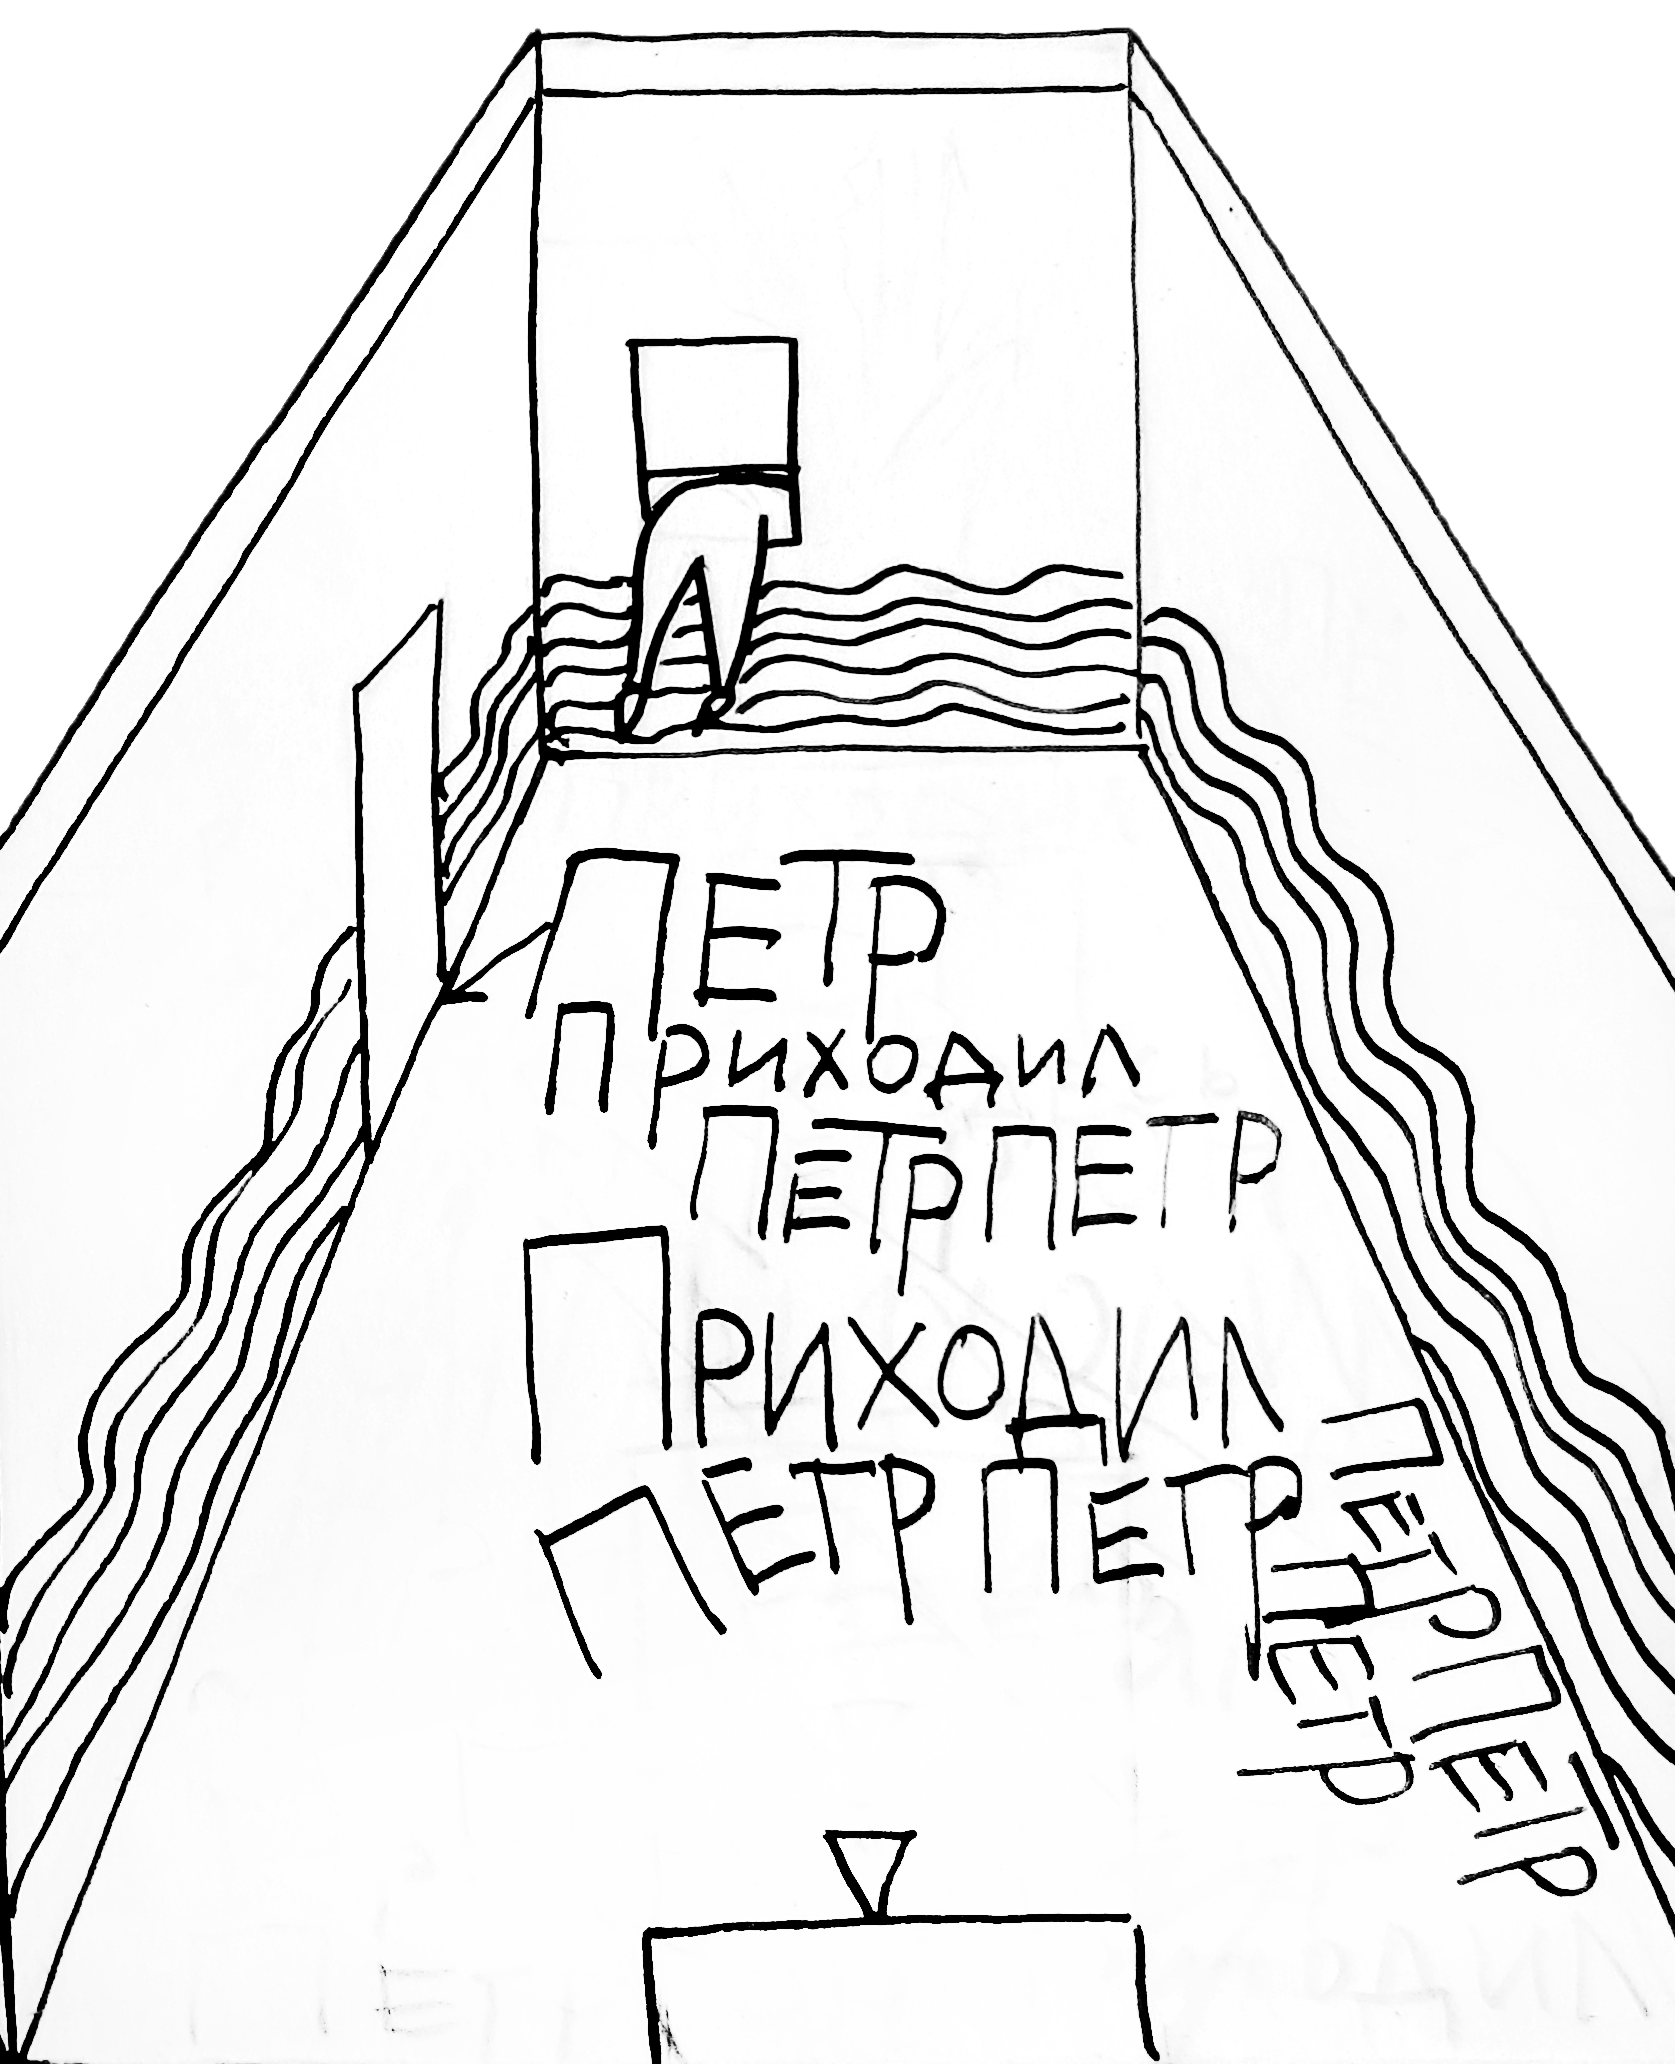 ПЕТР
ПРИХОДИЛ
ПЕТРПЕТР
ПРИХОДИЛ
ПЕТР ПЕТР
ПЕТРПЕТР
ПЕТР